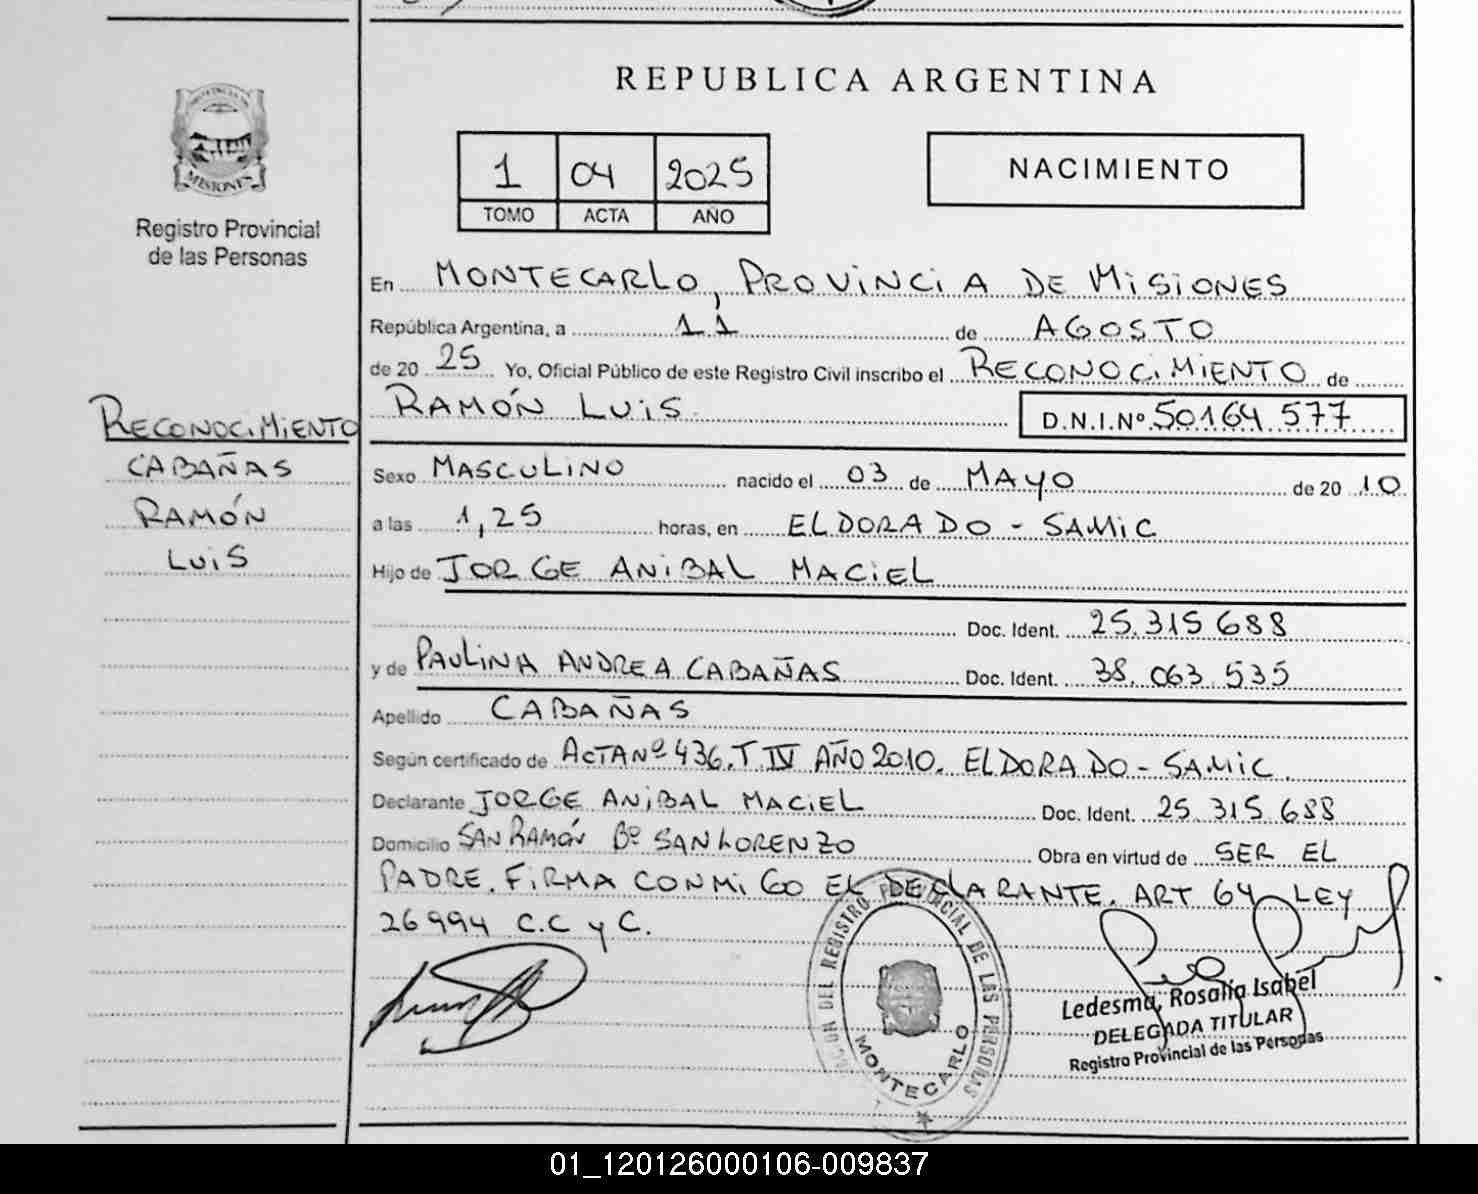 REPUBLICA ARGENTINA
PROVINCIA DE
MISIONES
Registro Provincial
de las Personas
1 04 2025
TOMO ACTA AÑO
NACIMIENTO
En MONTECARLO, PROVINCIA DE MISIONES
República Argentina, a 11 de AGOSTO
de 20 25 Yo, Oficial Público de este Registro Civil inscribo el RECONOCIMIENTO de
RAMÓN LUIS D.N.I.Nº 50164 577
RECONOCIMIENTO
CABAÑAS
RAMÓN
LUIS
Sexo MASCULINO nacido el 03 de MAYO de 20 10
a las 1,25 horas, en ELDORADO - SAMIC
Hijo de JORGE ANIBAL MACIEL
Doc. Ident. 25.315 688
y de PAULINA ANDREA CABAÑAS Doc. Ident. 38.063.535
Apellido CABAÑAS
Según certificado de ACTA Nº 436. T IV AÑO 2010. ELDORADO - SAMIC.
Declarante JORGE ANIBAL MACIEL Doc. Ident. 25 315.688
Domicilio SAN RAMÓN Bº SAN LORENZO Obra en virtud de SER EL
PADRE. FIRMA CONMIGO EL DECLARANTE. ART 64 LEY
26994 C.C y C.
DEL REGISTRO PROVINCIAL DE LAS PERSONAS
MONTECARLO
Ledesma, Rosalia Isabel
DELEGADA TITULAR
Registro Provincial de las Personas
01_120126000106-009837